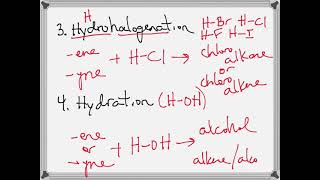 H
3. Hydrohalogenation H-Br H-Cl
H-F H-I
-ene
-yne + H-Cl → chloro
alkane
or
chloro
alkene
4. Hydration (H-OH)
-ene
or
-yne + H-OH → alcohol
alkene/alco